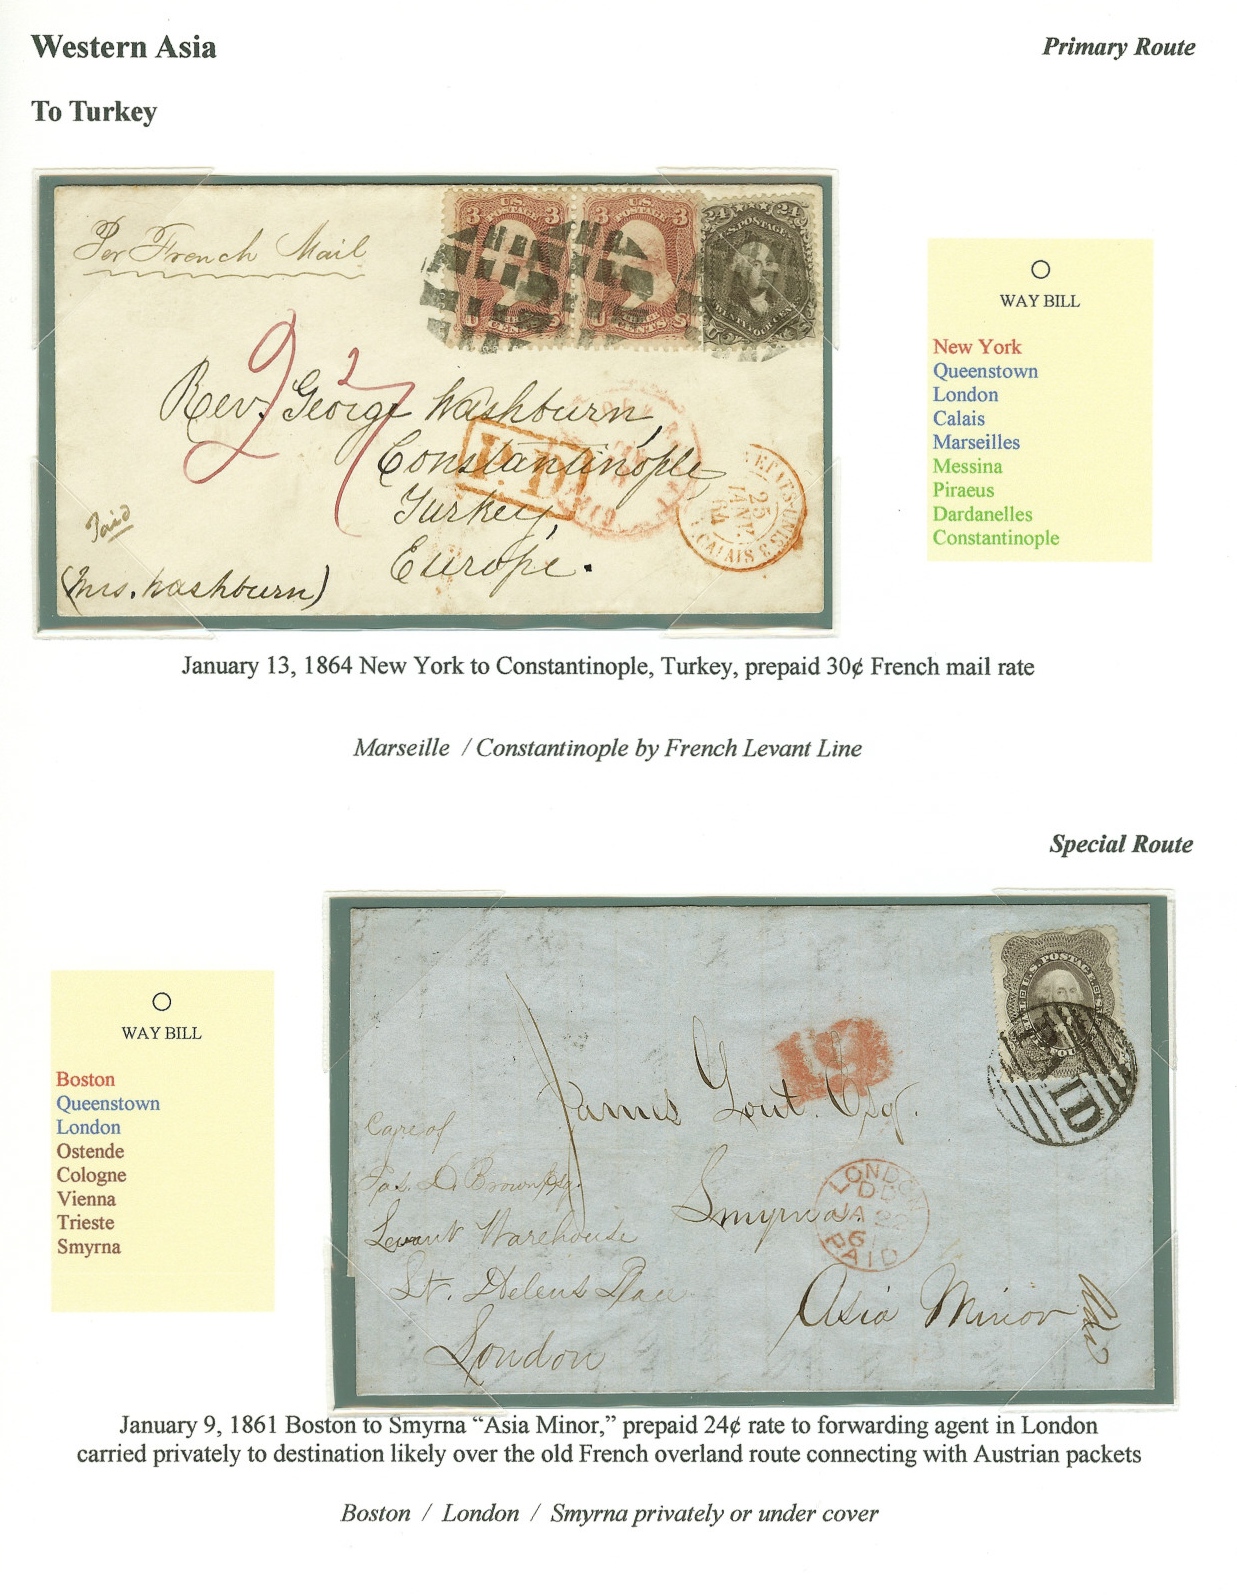 Western Asia
Primary Route
To Turkey
Per French Mail
3 U.S. 3
POSTAGE
3 U.S. 3
POSTAGE
24 24
U.S. POSTAGE
CENTS
27
2
Rev. George Washburn,
Constantinople,
Turkey,
Europe.
P.D.
ETATS-UNIS
25
JANV.
64
CALAIS
Paid
(Mrs. Washburn)
WAY BILL
New York
Queenstown
London
Calais
Marseilles
Messina
Piraeus
Dardanelles
Constantinople
January 13, 1864 New York to Constantinople, Turkey, prepaid 30¢ French mail rate
Marseille / Constantinople by French Levant Line
Special Route
WAY BILL
Boston
Queenstown
London
Ostende
Cologne
Vienna
Trieste
Smyrna
U.S. POSTAGE
PAID
19
James Gout. Esq.
Smyrna
Asia Minor
Care of
Jas. D. Brown Esq.
Levant Warehouse
St. Helens Place
London
LONDON
JA 22
61
PAID
January 9, 1861 Boston to Smyrna “Asia Minor,” prepaid 24¢ rate to forwarding agent in London
carried privately to destination likely over the old French overland route connecting with Austrian packets
Boston / London / Smyrna privately or under cover